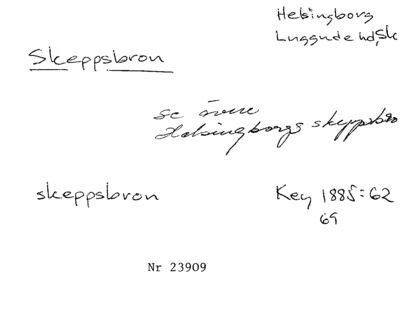 Helsingborg
Luggude hd, Sk
Skeppsbron
se även
Helsingborgs skeppsbro
skeppsbron
Key 1885:62
69
Nr 23909